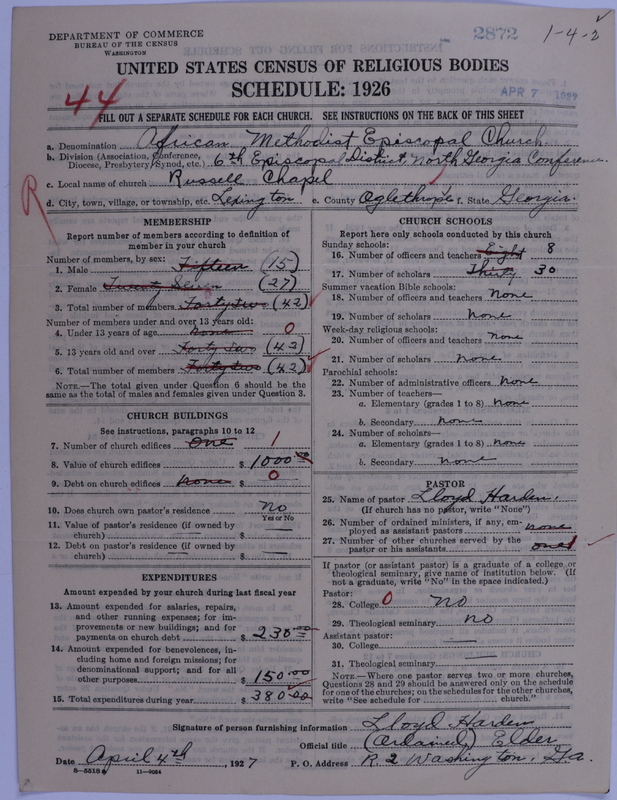 DEPARTMENT OF COMMERCE
BUREAU OF THE CENSUS
WASHINGTON
2872
1-4-2
UNITED STATES CENSUS OF RELIGIOUS BODIES
SCHEDULE: 1926
APR 7 1927
44
FILL OUT A SEPARATE SCHEDULE FOR EACH CHURCH. SEE INSTRUCTIONS ON THE BACK OF THIS SHEET
a. Denomination African Methodist Episcopal Church
b. Division (Association, Conference, Diocese, Presbytery, Synod, etc.) 6th Episcopal District, North Georgia Conference.
c. Local name of church Russell Chapel
R
d. City, town, village, or township, etc. Lexington e. County Oglethrope f. State Georgia.
MEMBERSHIP
Report number of members according to definition of member in your church
Number of members, by sex:
1. Male Fifteen (15)
2. Female Twenty Seven (27)
3. Total number of members Forty two (42)
Number of members under and over 13 years old:
4. Under 13 years of age None 0
5. 13 years old and over Forty Two (42)
6. Total number of members Forty two (42)
NOTE.—The total given under Question 6 should be the same as the total of males and females given under Question 3.
CHURCH BUILDINGS
See instructions, paragraphs 10 to 12
7. Number of church edifices One 1
8. Value of church edifices $ 1000.00
9. Debt on church edifices None $ 0
10. Does church own pastor's residence No
Yes or No
11. Value of pastor's residence (if owned by church) — $ —
12. Debt on pastor's residence (if owned by church) — $ —
EXPENDITURES
Amount expended by your church during last fiscal year
13. Amount expended for salaries, repairs, and other running expenses; for improvements or new buildings; and for payments on church debt $ 230.00
14. Amount expended for benevolences, including home and foreign missions; for denominational support; and for all other purposes $ 150.00
15. Total expenditures during year $ 380.00
CHURCH SCHOOLS
Report here only schools conducted by this church
Sunday schools:
16. Number of officers and teachers Eight 8
17. Number of scholars Thirty 30
Summer vacation Bible schools:
18. Number of officers and teachers None
19. Number of scholars None
Week-day religious schools:
20. Number of officers and teachers None
21. Number of scholars None
Parochial schools:
22. Number of administrative officers None
23. Number of teachers—
a. Elementary (grades 1 to 8) None
b. Secondary None
24. Number of scholars—
a. Elementary (grades 1 to 8) None
b. Secondary None
PASTOR
25. Name of pastor Lloyd Harden.
(If church has no pastor, write "None")
26. Number of ordained ministers, if any, employed as assistant pastors None
27. Number of other churches served by the pastor or his assistants one 1
If pastor (or assistant pastor) is a graduate of a college or theological seminary, give name of institution below. (If not a graduate, write "No" in the space indicated.)
Pastor:
28. College 0 No
29. Theological seminary No
Assistant pastor:
30. College —
31. Theological seminary —
NOTE.—Where one pastor serves two or more churches, Questions 28 and 29 should be answered only on the schedule for one of the churches; on the schedules for the other churches, write "See schedule for church."
Signature of person furnishing information Lloyd Harden
Official title (Ordained) Elder
Date April 4th, 1927 P. O. Address R. 2 Washington, Ga.
8—5518 a 11—9064